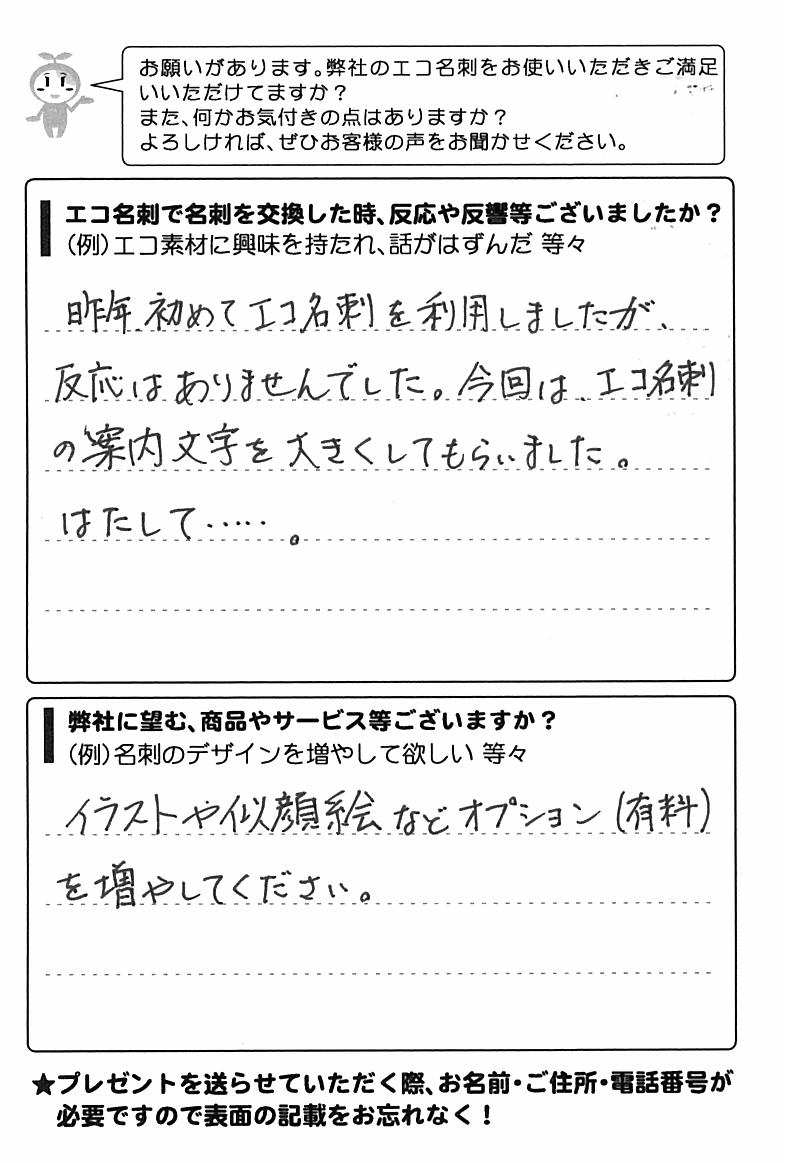 お願いがあります。弊社のエコ名刺をお使いいただきご満足
いいただけてますか？
また、何かお気付きの点はありますか？
よろしければ、ぜひお客様の声をお聞かせください。
エコ名刺で名刺を交換した時、反応や反響等ございましたか？
（例）エコ素材に興味を持たれ、話がはずんだ 等々
昨年、初めてエコ名刺を利用しましたが、
反応はありませんでした。今回は、エコ名刺
の案内文字を大きくしてもらいました。
はたして……。
弊社に望む、商品やサービス等ございますか？
（例）名刺のデザインを増やして欲しい 等々
イラストや似顔絵などオプション（有料）
を増やしてください。
★プレゼントを送らせていただく際、お名前・ご住所・電話番号が
必要ですので表面の記載をお忘れなく！